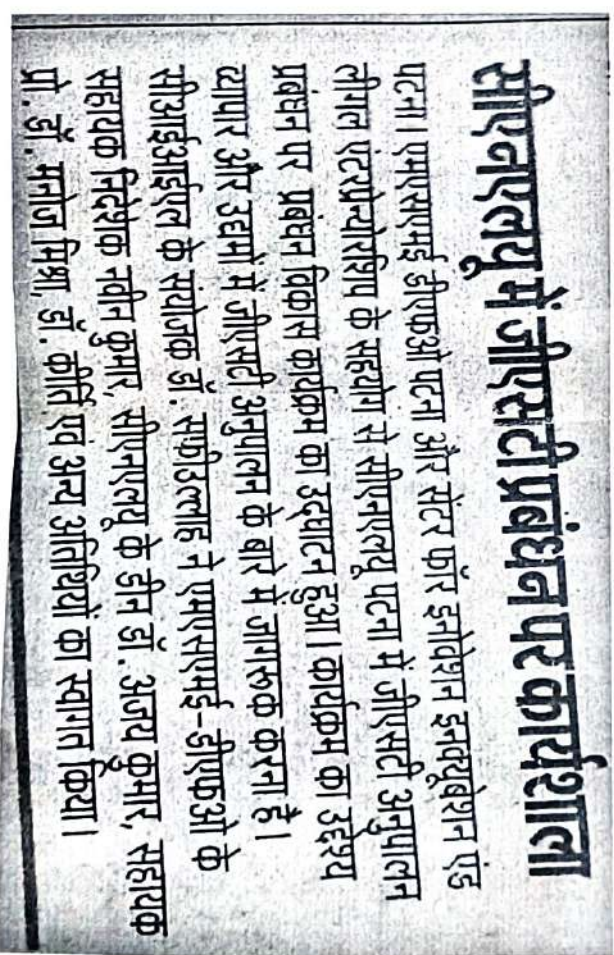 सीएनएलयू में जीएसटी प्रबंधन पर कार्यशाला
पटना। एमएसएमई डीएफओ पटना और सेंटर फॉर इनोवेशन इनक्यूबेशन एंड
लीगल एंटरप्रेन्योरशिप के सहयोग से सीएनएलयू पटना में जीएसटी अनुपालन
प्रबंधन पर प्रबंधन विकास कार्यक्रम का उद्घाटन हुआ। कार्यक्रम का उद्देश्य
व्यापार और उद्यमों में जीएसटी अनुपालन के बारे में जागरूक करना है।
सीआईआईएल के संयोजक डॉ. सफीउल्लाह ने एमएसएमई-डीएफओ के
सहायक निदेशक नवीन कुमार, सीएनएलयू के डीन डॉ. अजय कुमार, सहायक
प्रो. डॉ. मनोज मिश्रा, डॉ. कीर्ति एवं अन्य अतिथियों का स्वागत किया।